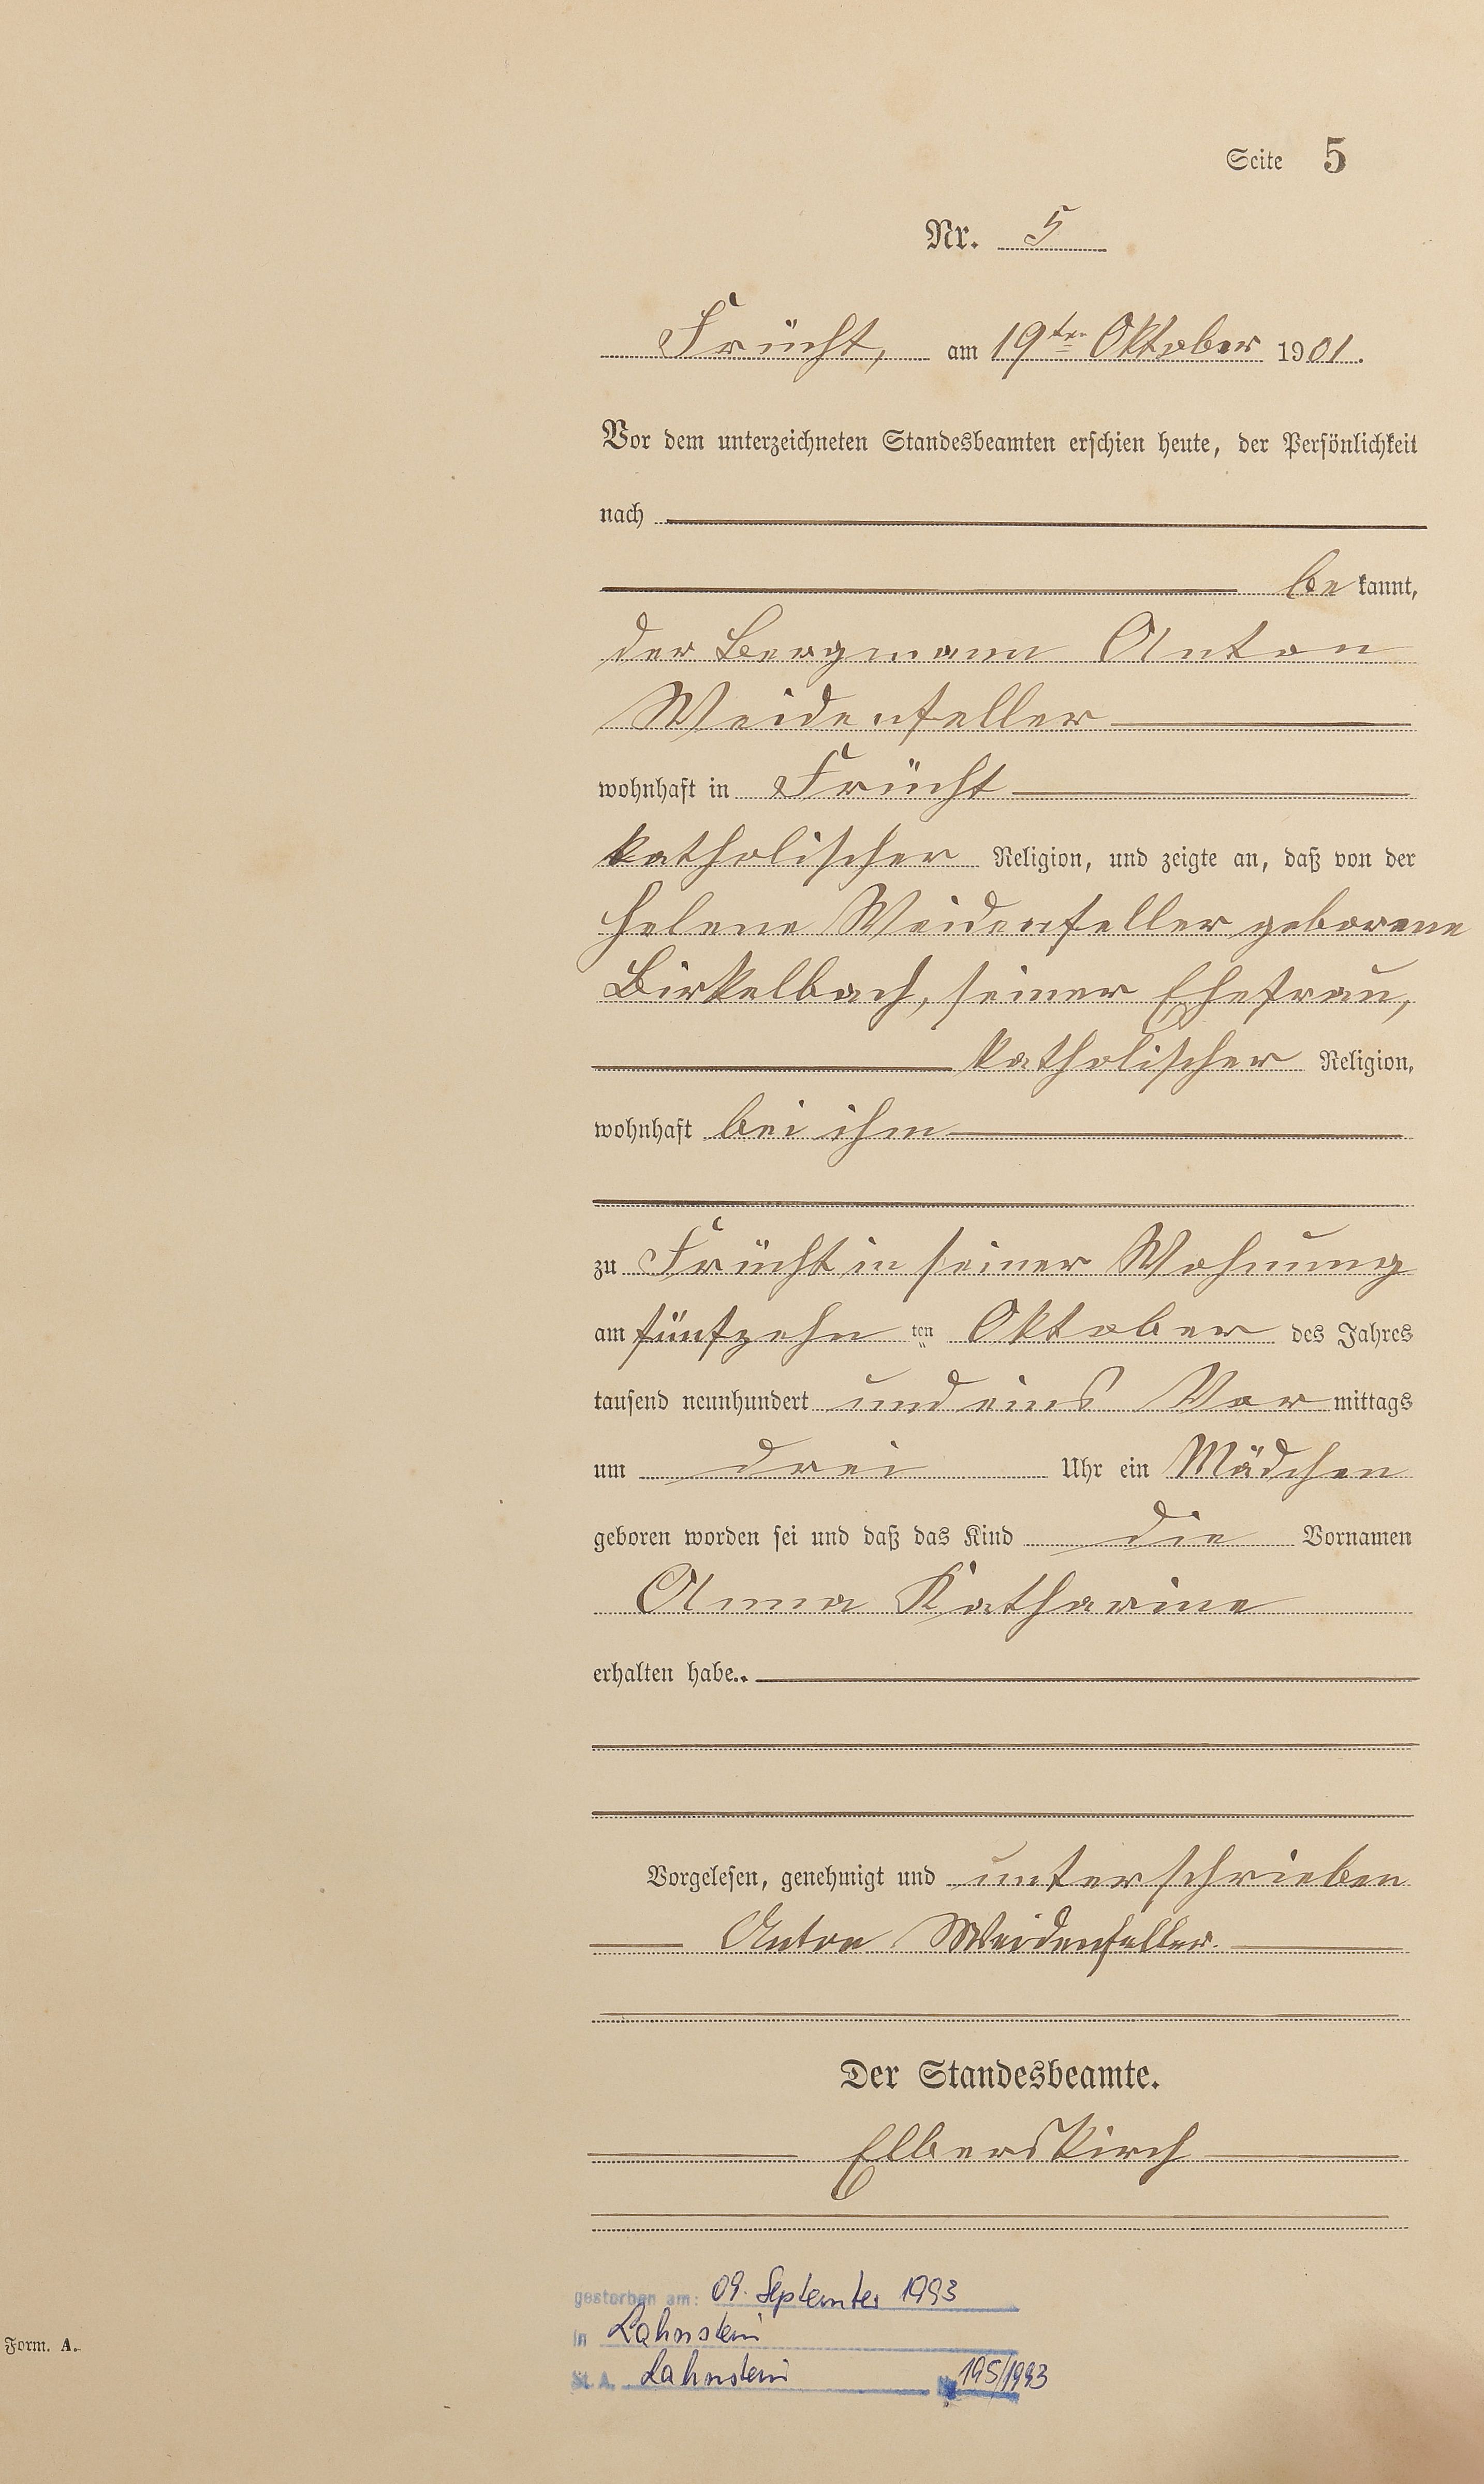 Seite 5
Nr. 5
Frücht, am 19ten Oktober 1901.
Vor dem unterzeichneten Standesbeamten erschien heute, der Persönlichkeit
nach
be kannt,
der Bergmann Anton
Weidenfeller
wohnhaft in Frücht
katholischer Religion, und zeigte an, daß von der
Helene Weidenfeller geborene
Birkelbach, seiner Ehefrau,
katholischer Religion,
wohnhaft bei ihm
zu Frücht in seiner Wohnung
am fünfzehn ten Oktober des Jahres
tausend neunhundert und eins Vor mittags
um drei Uhr ein Mädchen
geboren worden sei und daß das Kind die Vornamen
Anna Katharine
erhalten habe.
Vorgelesen, genehmigt und unterschrieben
Anton Weidenfeller.
Der Standesbeamte.
Elberskirch
gestorben am: 09. September 1993
in Lahnstein
St. A. Lahnstein Nr. 195/1993
Form. A.